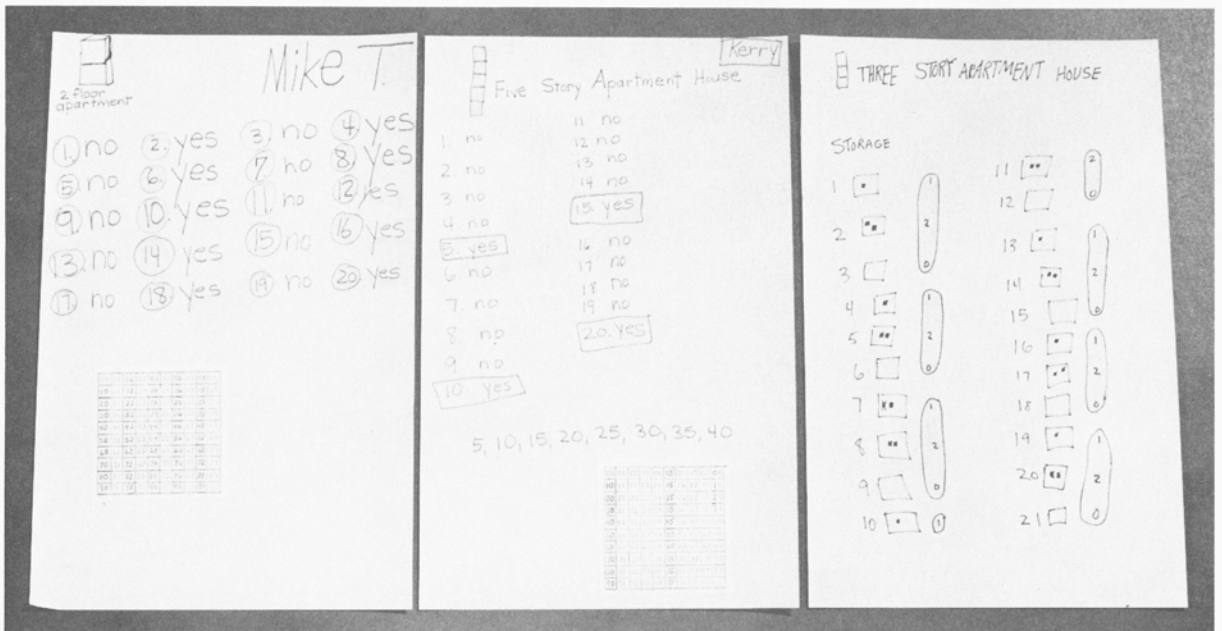 Mike T.
2 floor
apartment
1. no 2. yes 3. no 4. yes
5. no 6. yes 7. no 8. yes
9. no 10. yes 11. no 12. yes
13. no 14. yes 15. no 16. yes
17. no 18. yes 19. no 20. yes
Kerry
Five Story Apartment House
1. no
2. no
3 no
4 no
5. yes
6 no
7. no
8. no
9 no
10. yes
11 no
12 no
13 no
14 no
15. yes
16 no
17 no
18 no
19 no
20. yes
5, 10, 15, 20, 25, 30, 35, 40
THREE STORY APARTMENT HOUSE
STORAGE
1
2
3
4
5
6
7
8
9
10
1
2
0
1
2
0
1
2
0
1
11
12
13
14
15
16
17
18
19
20
21
2
0
1
2
0
1
2
0
1
2
0